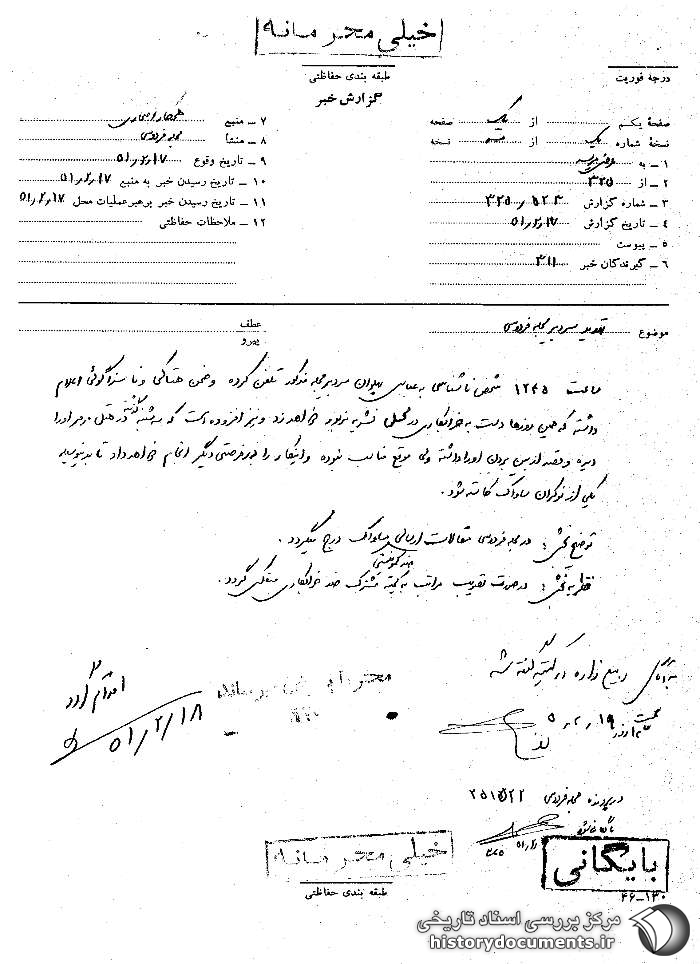 خیلی محرمانه
طبقه بندی حفاظتی
درجه فوریت
گزارش خبر
صفحهٔ یکم از یک صفحه
نسخهٔ شماره یک از نسخه
۱ ـ به
۲ ـ از ۳۲۵
۳ ـ شماره گزارش
۴ ـ تاریخ گزارش ۵۱/۲/۱۷
۵ ـ پیوست
۶ ـ گیرندگان خبر ۳۱۱
۷ ـ منبع همکار افتخاری
۸ ـ منشأ مجله فردوسی
۹ ـ تاریخ وقوع ۵۱/۲/۱۷
۱۰ ـ تاریخ رسیدن خبر به منبع ۵۱/۲/۱۷
۱۱ ـ تاریخ رسیدن خبر برهبر عملیات محل ۵۱/۲/۱۷
۱۲ ـ ملاحظات حفاظتی
موضوع تهدید سردبیر مجله فردوسی
عطف
پیرو
ساعت ۱۲۴۵ شخص ناشناسی به عباس پهلوان سردبیر مجله مذکور تلفن کرده و ضمن هتاکی و ناسزاگوئی اعلام
داشته که همین روزها دست به خرابکاری در محل نشریه مزبور خواهد زد و نیز افزوده است که شنبه گذشته در هتل مرمر او را
دیده و قصد از بین بردن او را داشته ولی موقع مناسب نبوده و اینکار را در فرصتی دیگر انجام خواهد داد تا بدینوسیله
یکی از نوکران ساواک کاسته شود.
توضیح بخش: در مجله فردوسی مقالات ضد کمونیستی ارسالی ساواک درج میگردد.
نظریه بخش: در صورت تصویب مراتب به کمیته مشترک ضد خرابکاری منعکس گردد.
به آقای ربیع زاده در کمیته گفته شد
۵۱/۲/۱۹
اقدام گردد
۵۱/۲/۱۸
در پرونده مجله فردوسی
بایگانی شود
خیلی محرمانه
طبقه بندی حفاظتی
بایگانی
۴۶-۱۳۰
مرکز بررسی اسناد تاریخی
historydocuments.ir